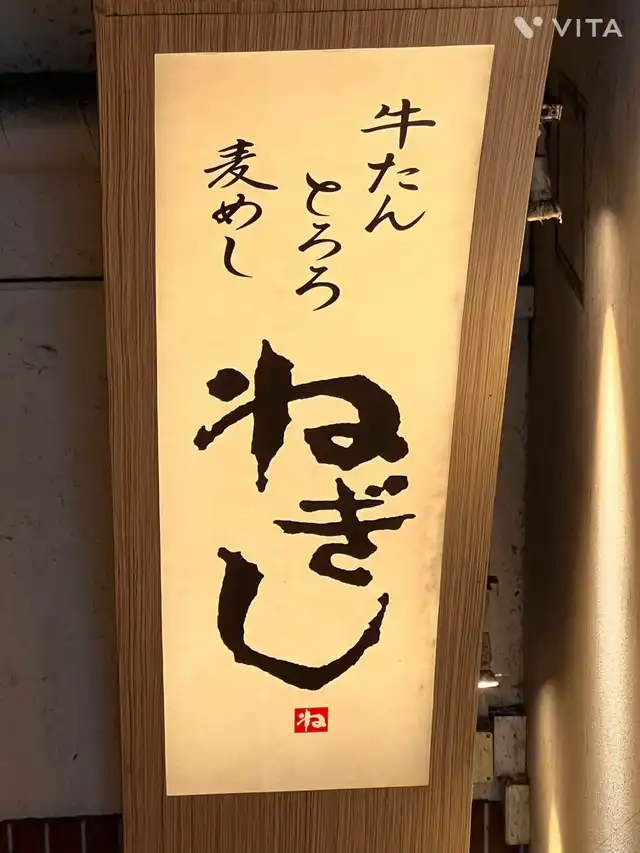 牛たん
とろろ
麦めし
ねぎし
ね
VITA